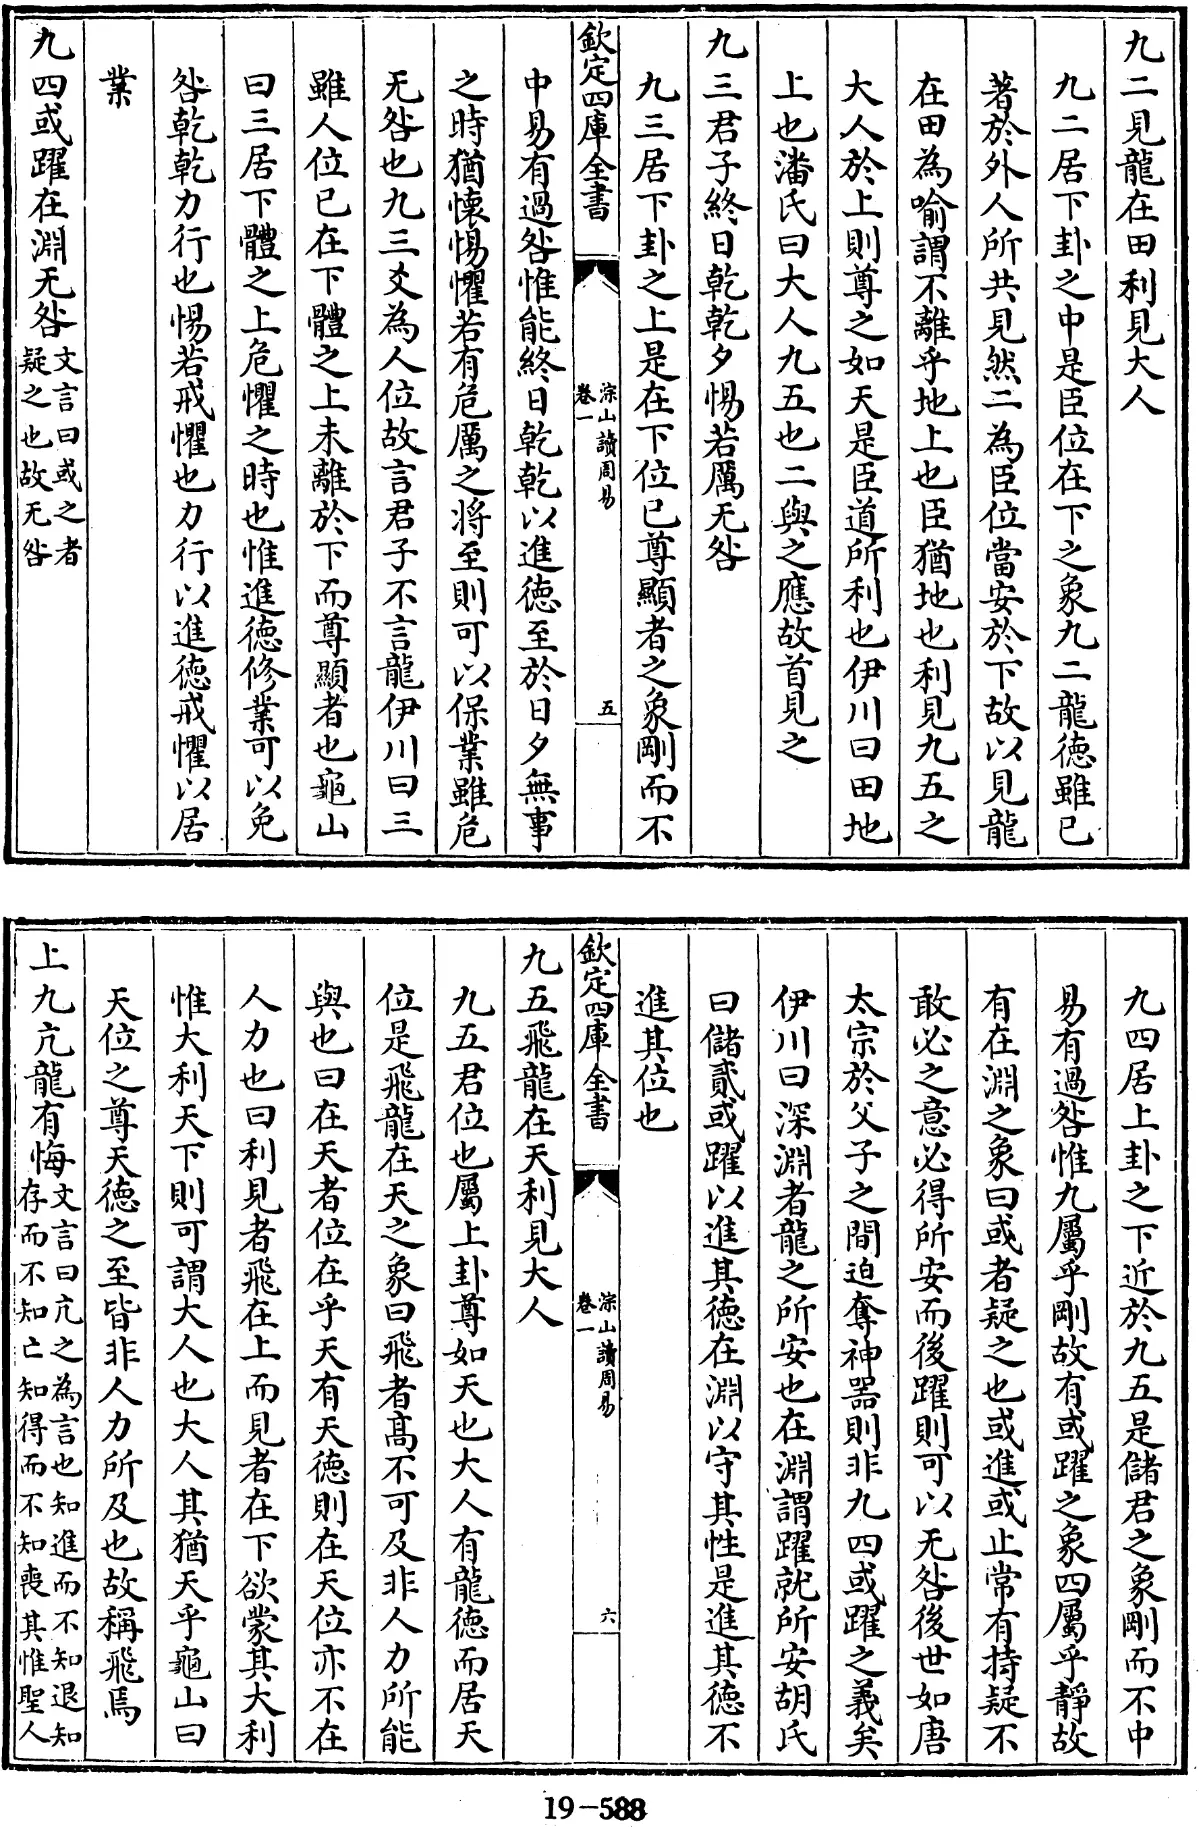 九二見龍在田利見大人
九二居下卦之中是臣位在下之象九二龍德雖已
著於外人所共見然二為臣位當安於下故以見龍
在田為喻謂不離乎地上也臣猶地也利見九五之
大人於上則尊之如天是臣道所利也伊川曰田地
上也潘氏曰大人九五也二與之應故首見之
九三君子終日乾乾夕惕若厲无咎
九三居下卦之上是在下位已尊顯者之象剛而不
欽定四庫全書
淙山讀周易
卷一
五
中易有過咎惟能終日乾乾以進德至於日夕無事
之時猶懷惕懼若有危厲之將至則可以保業雖危
无咎也九三爻為人位故言君子不言龍伊川曰三
雖人位已在下體之上未離於下而尊顯者也龜山
曰三居下體之上危懼之時也惟進德修業可以免
咎乾乾力行也惕若戒懼也力行以進德戒懼以居
業
九四或躍在淵无咎文言曰或之者
疑之也故无咎
九四居上卦之下近於九五是儲君之象剛而不中
易有過咎惟九屬乎剛故有或躍之象四屬乎靜故
有在淵之象曰或者疑之也或進或止常有持疑不
敢必之意必得所安而後躍則可以无咎後世如唐
太宗於父子之間迫奪神器則非九四或躍之義矣
伊川曰深淵者龍之所安也在淵謂躍就所安胡氏
曰儲貳或躍以進其德在淵以守其性是進其德不
進其位也
欽定四庫全書
淙山讀周易
卷一
六
九五飛龍在天利見大人
九五君位也屬上卦尊如天也大人有龍德而居天
位是飛龍在天之象曰飛者高不可及非人力所能
與也曰在天者位在乎天有天德則在天位亦不在
人力也曰利見者飛在上而見者在下欲蒙其大利
惟大利天下則可謂大人也大人其猶天乎龜山曰
天位之尊天德之至皆非人力所及也故稱飛焉
上九亢龍有悔文言曰亢之為言也知進而不知退知
存而不知亡知得而不知喪其惟聖人
19-588